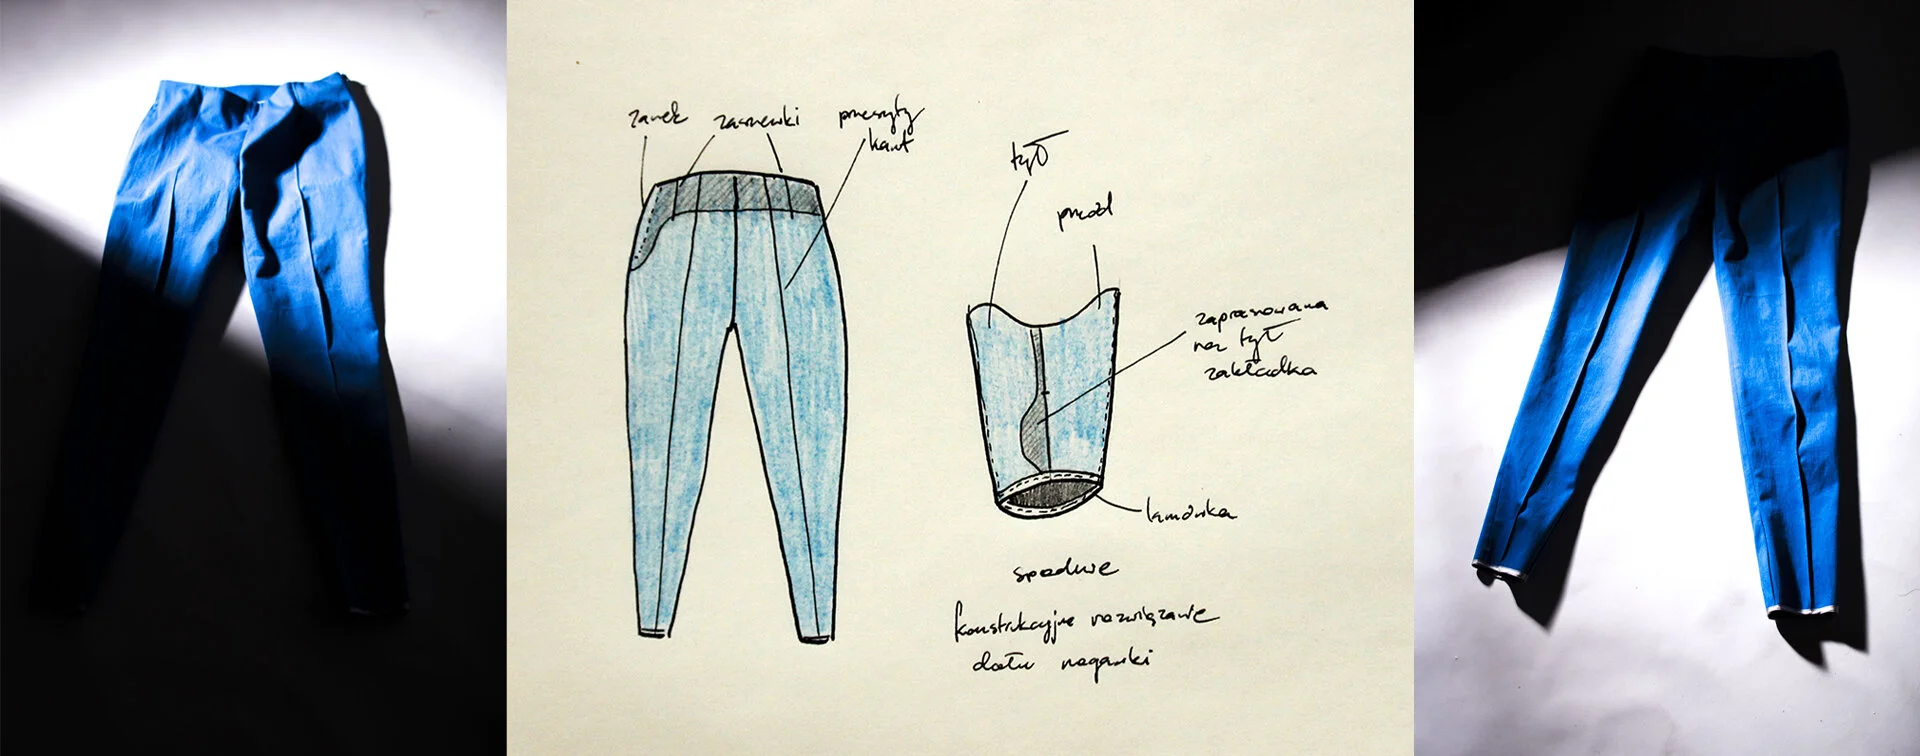 zamek
zaszewki
przeszyty
kant
tył
przód
zaprasowana
na tył
zakładka
lamówka
spodnie
konstrukcyjne rozwiązanie
dołu nogawki